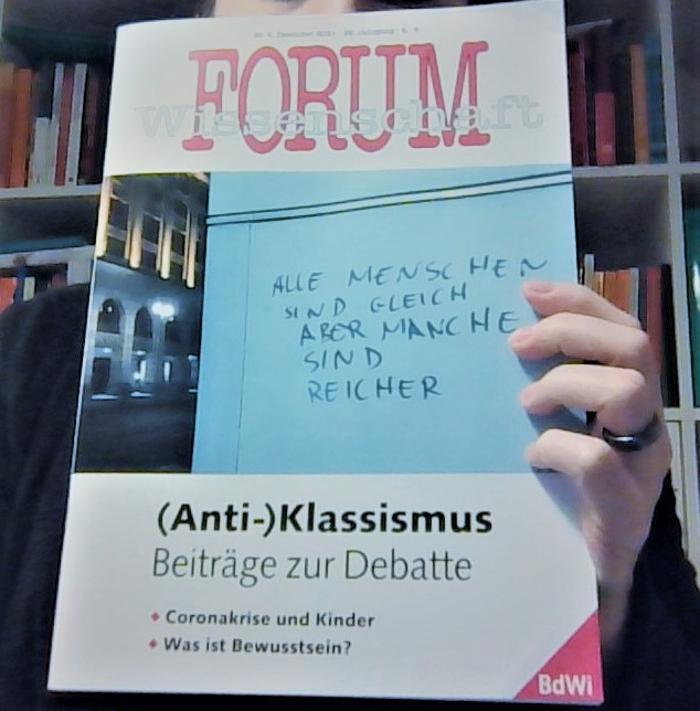 FORUM
Wissenschaft
ALLE MENSCHEN
SIND GLEICH
ABER MANCHE
SIND
REICHER
(Anti-)Klassismus
Beiträge zur Debatte
Coronakrise und Kinder
Was ist Bewusstsein?
BdWi